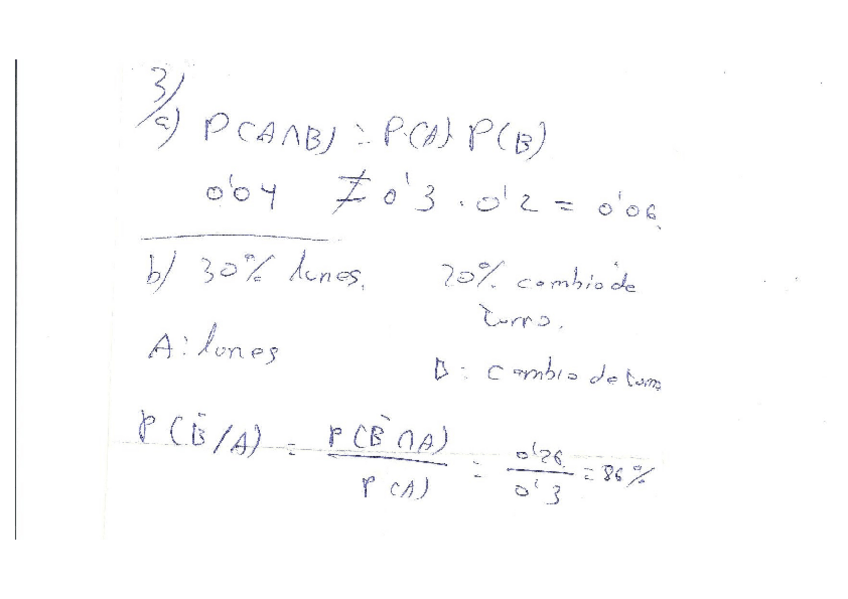 3/
a) P(A∩B) = P(A) · P(B)
0'04 ≠ 0'3 · 0'2 = 0'06
b) 30% lunes. 20% cambio de
turno.
A: lunes
B: cambio de turno
P(B̄/A) = P(B̄∩A) / P(A) = 0'26 / 0'3 = 86%